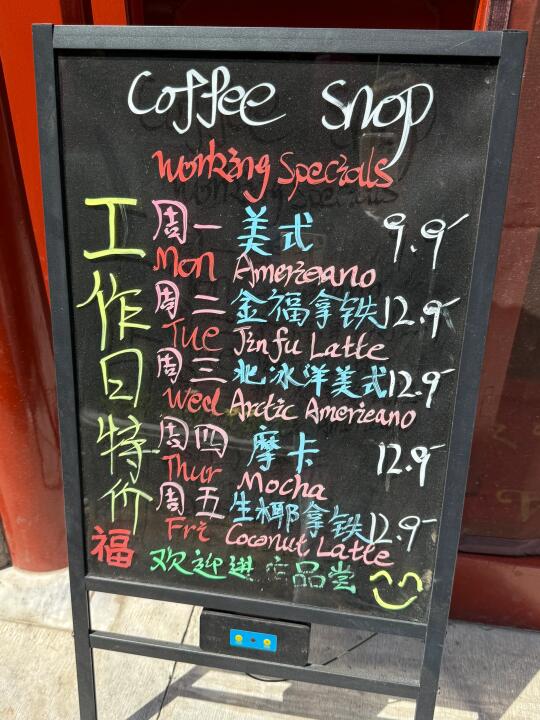 Coffee Shop
Working Specials
工作日特价
周一 美式 9.9
Mon Americano
周二 金福拿铁 12.9
Tue Jinfu Latte
周三 北冰洋美式 12.9
Wed Arctic Americano
周四 摩卡 12.9
Thur Mocha
周五 生椰拿铁 12.9
Fri Coconut Latte
福 欢迎进店品尝